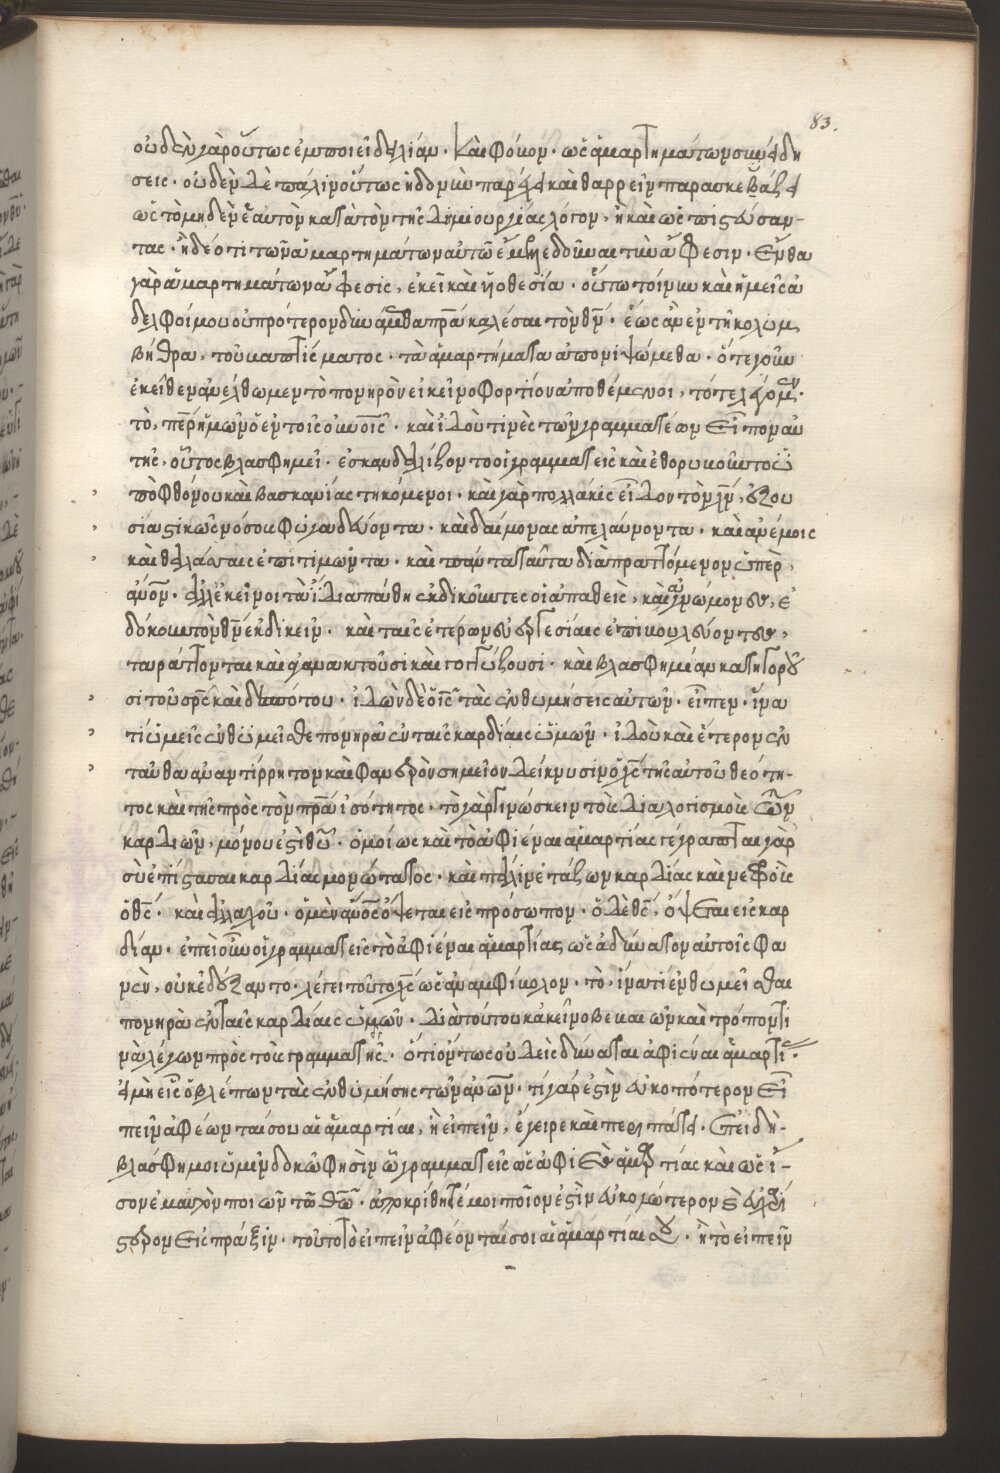 83.
οὐδὲν γὰρ οὕτως ἐμποιεῖ δειλίαν · καὶ φόνον · ὡς ἁμαρτημάτων συνειδη
σεις · οὐδὲν δὲ πάλιν οὕτως ἡδονὴν παρέχει καὶ θαρρεῖν παρασκευάζει
ὡς τὸ μηδὲν ἑαυτὸν κατὰ τὸν τῆς δημιουργίας λόγον, ἢ καὶ ὡς πιστεύσαν-
τας · ἤδε ὅτι τῶν ἁμαρτημάτων αὐτῶ ἔμελλε δοῦναι τὴν ἄφεσιν · ἔνθα
γὰρ ἁμαρτημάτων ἄφεσις, ἐκεῖ καὶ υἱοθεσία · οὕτω τοίνυν καὶ ἡμεῖς ἀ
δελφοί μου οὐ πρότερον δυνάμεθα πρα καλέσαι τὸν θν · ἕως ἂν ἐν τῆ κολυμ
βήθρα, τοῦ βαπτίσματος · τὰ ἁμαρτήματα ἀπορίψωμεθα · ὅτε γοῦν
ἐκεῖθεν ἀνέλθωμεν τὸ πονηρὸν ἐκεῖνο φορτίον ἀποθέμενοι, τότε λέγομεν ·
τὸ, περ ἡμῶν ὁ ἐν τοῖς οὐνοῖς · καὶ ἰδού τινὲς τῶν γραμματέων εἶπον ἀυ
τῆς, οὗτος βλασφημεῖ · ἐσκανδαλίζοντο οἱ γραμματεῖς καὶ ἐθορυβοῦντο ὑ
πὸ φθόνου καὶ βασκανίας τηκόμενοι · καὶ γὰρ πολλάκις εἶδον τὸν χν, ἐξου
σιαστικῶς νόσου φυγαδεύοντα · καὶ δαίμονας ἀπελαύνοντα · καὶ ἀνέμοις
καὶ θαλάσσαις ἐπιτιμῶντα · καὶ πάντα ταῦτα διαπραττόμενον ὑπὲρ,
ἀνον · ἀλλ' ἐκεῖνοι τὰ ἴδια πάθη ἐκδικοῦντες οἱ ἀπαθεῖς, καὶ ἀγνώμονες, ἐ
δόκουν τὸν θν ἐκδικεῖν · καὶ ταῖς ἑτέρων εὐεργεσίαις ἐπιβουλεύοντες,
ταράττονται καὶ ἀγανακτοῦσι καὶ γογγύζουσι · καὶ βλασφημίαν κατηγοροῦ
σι τοῦ σρς καὶ δεσπότου · ἰδὼν δὲ ὁ ις τὰς ἐνθυμήσεις αὐτῶν · εἶπεν · ἵνα
τί ὑμεῖς ἐνθυμεῖσθε πονηρὰ ἐν ταῖς καρδίαις ὑμῶν · ἰδοὺ καὶ ἕτερον ἐν
ταῦθα ἀναντίρρητον καὶ φανερὸν σημεῖον δείκνυσιν ὁ χς τῆς αὐτοῦ θεότη-
τος καὶ τῆς πρὸς τὸν πρα ἰσότητος · τὸ γὰρ γινώσκειν τοὺς διαλογισμοὺς τῶν
καρδιῶν, μόνου ἐστὶ θυ · ὁμοίως καὶ τὸ ἀφιέναι ἁμαρτίας γέγραπται γὰρ
σὺ ἐπίστασαι καρδίας μονώτατος · καὶ πάλιν ἐτάζων καρδίας καὶ νεφροὺς
ὁ θς · καὶ ἀλλαχοῦ · ὁ μὲν ανος ὄψεται εἰς πρόσωπον · ὁ δὲ θς, ὄψεται εἰς καρ
δίαν · ἐπεὶ οὖν οἱ γραμματεῖς τὸ ἀφιέναι ἁμαρτίας, ὡς ἀδύνατον αὐτοῖς φα
νὲν, οὐκ ἐδέξαντο · λέγει τοῦτο χς ὡς ἀναμφίβολον · τὸ, ἱνατί ἐνθυμεῖσθαι
πονηρὰ ἐν ταῖς καρδίαις ὑμῶν · διὰ τούτου κἀκεῖνο βεβαιῶν καὶ τρόπον τι
νὰ λέγων πρὸς τοὺς γραμματῆς · ὅτι ὄντως οὐδεὶς δύναται ἀφιέναι ἁμαρτι ·
εἰ μὴ εἷς ὁ βλέπων τὰς ἐνθυμήσης τῶν ανων · τί γάρ ἐστὶν εὐκοπότερον εἰ
πεῖν ἀφέωνται σου αἱ ἁμαρτίαι, ἢ εἰπεῖν, ἔγειρε καὶ περιπάτει · ἐπειδὴ-
βλάσφημοι ὑμῖν δοκῶ φησὶν ὦ γραμματεῖς ὡς ἀφιεὶς ἁμαρτίας καὶ ὡς ἴ-
σον ἐμαυτὸν ποιῶν τῶ θῶ · ἀποκρίθητέ μοι ποῖον ἐστὶν εὐκολώτερον καὶ εὐχε
στερον εἰς πράξιν · τοῦτο τὸ εἰπεῖν ἀφέονται σοι αἱ ἁμαρτίαι σου · ἢ τὸ εἰπεῖν